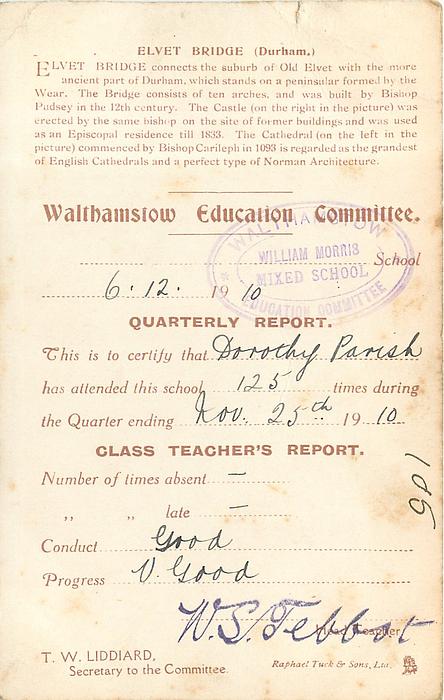 ELVET BRIDGE (Durham.)
ELVET BRIDGE connects the suburb of Old Elvet with the more
ancient part of Durham, which stands on a peninsular formed by the
Wear. The Bridge consists of ten arches, and was built by Bishop
Pudsey in the 12th century. The Castle (on the right in the picture) was
erected by the same bishop on the site of former buildings and was used
as an Episcopal residence till 1833. The Cathedral (on the left in the
picture) commenced by Bishop Carileph in 1093 is regarded as the grandest
of English Cathedrals and a perfect type of Norman Architecture.
Walthamstow Education Committee.
WALTHAMSTOW
WILLIAM MORRIS
MIXED SCHOOL
EDUCATION COMMITTEE
School
6.12. 1910
QUARTERLY REPORT.
This is to certify that Dorothy Parish
has attended this school 125 times during
the Quarter ending Nov. 25th 1910.
CLASS TEACHER'S REPORT.
Number of times absent —
" " late —
Conduct Good
Progress V. Good
W.S. Tebbot
Head Teacher
T. W. LIDDIARD,
Secretary to the Committee.
Raphael Tuck & Sons, Ltd.
105